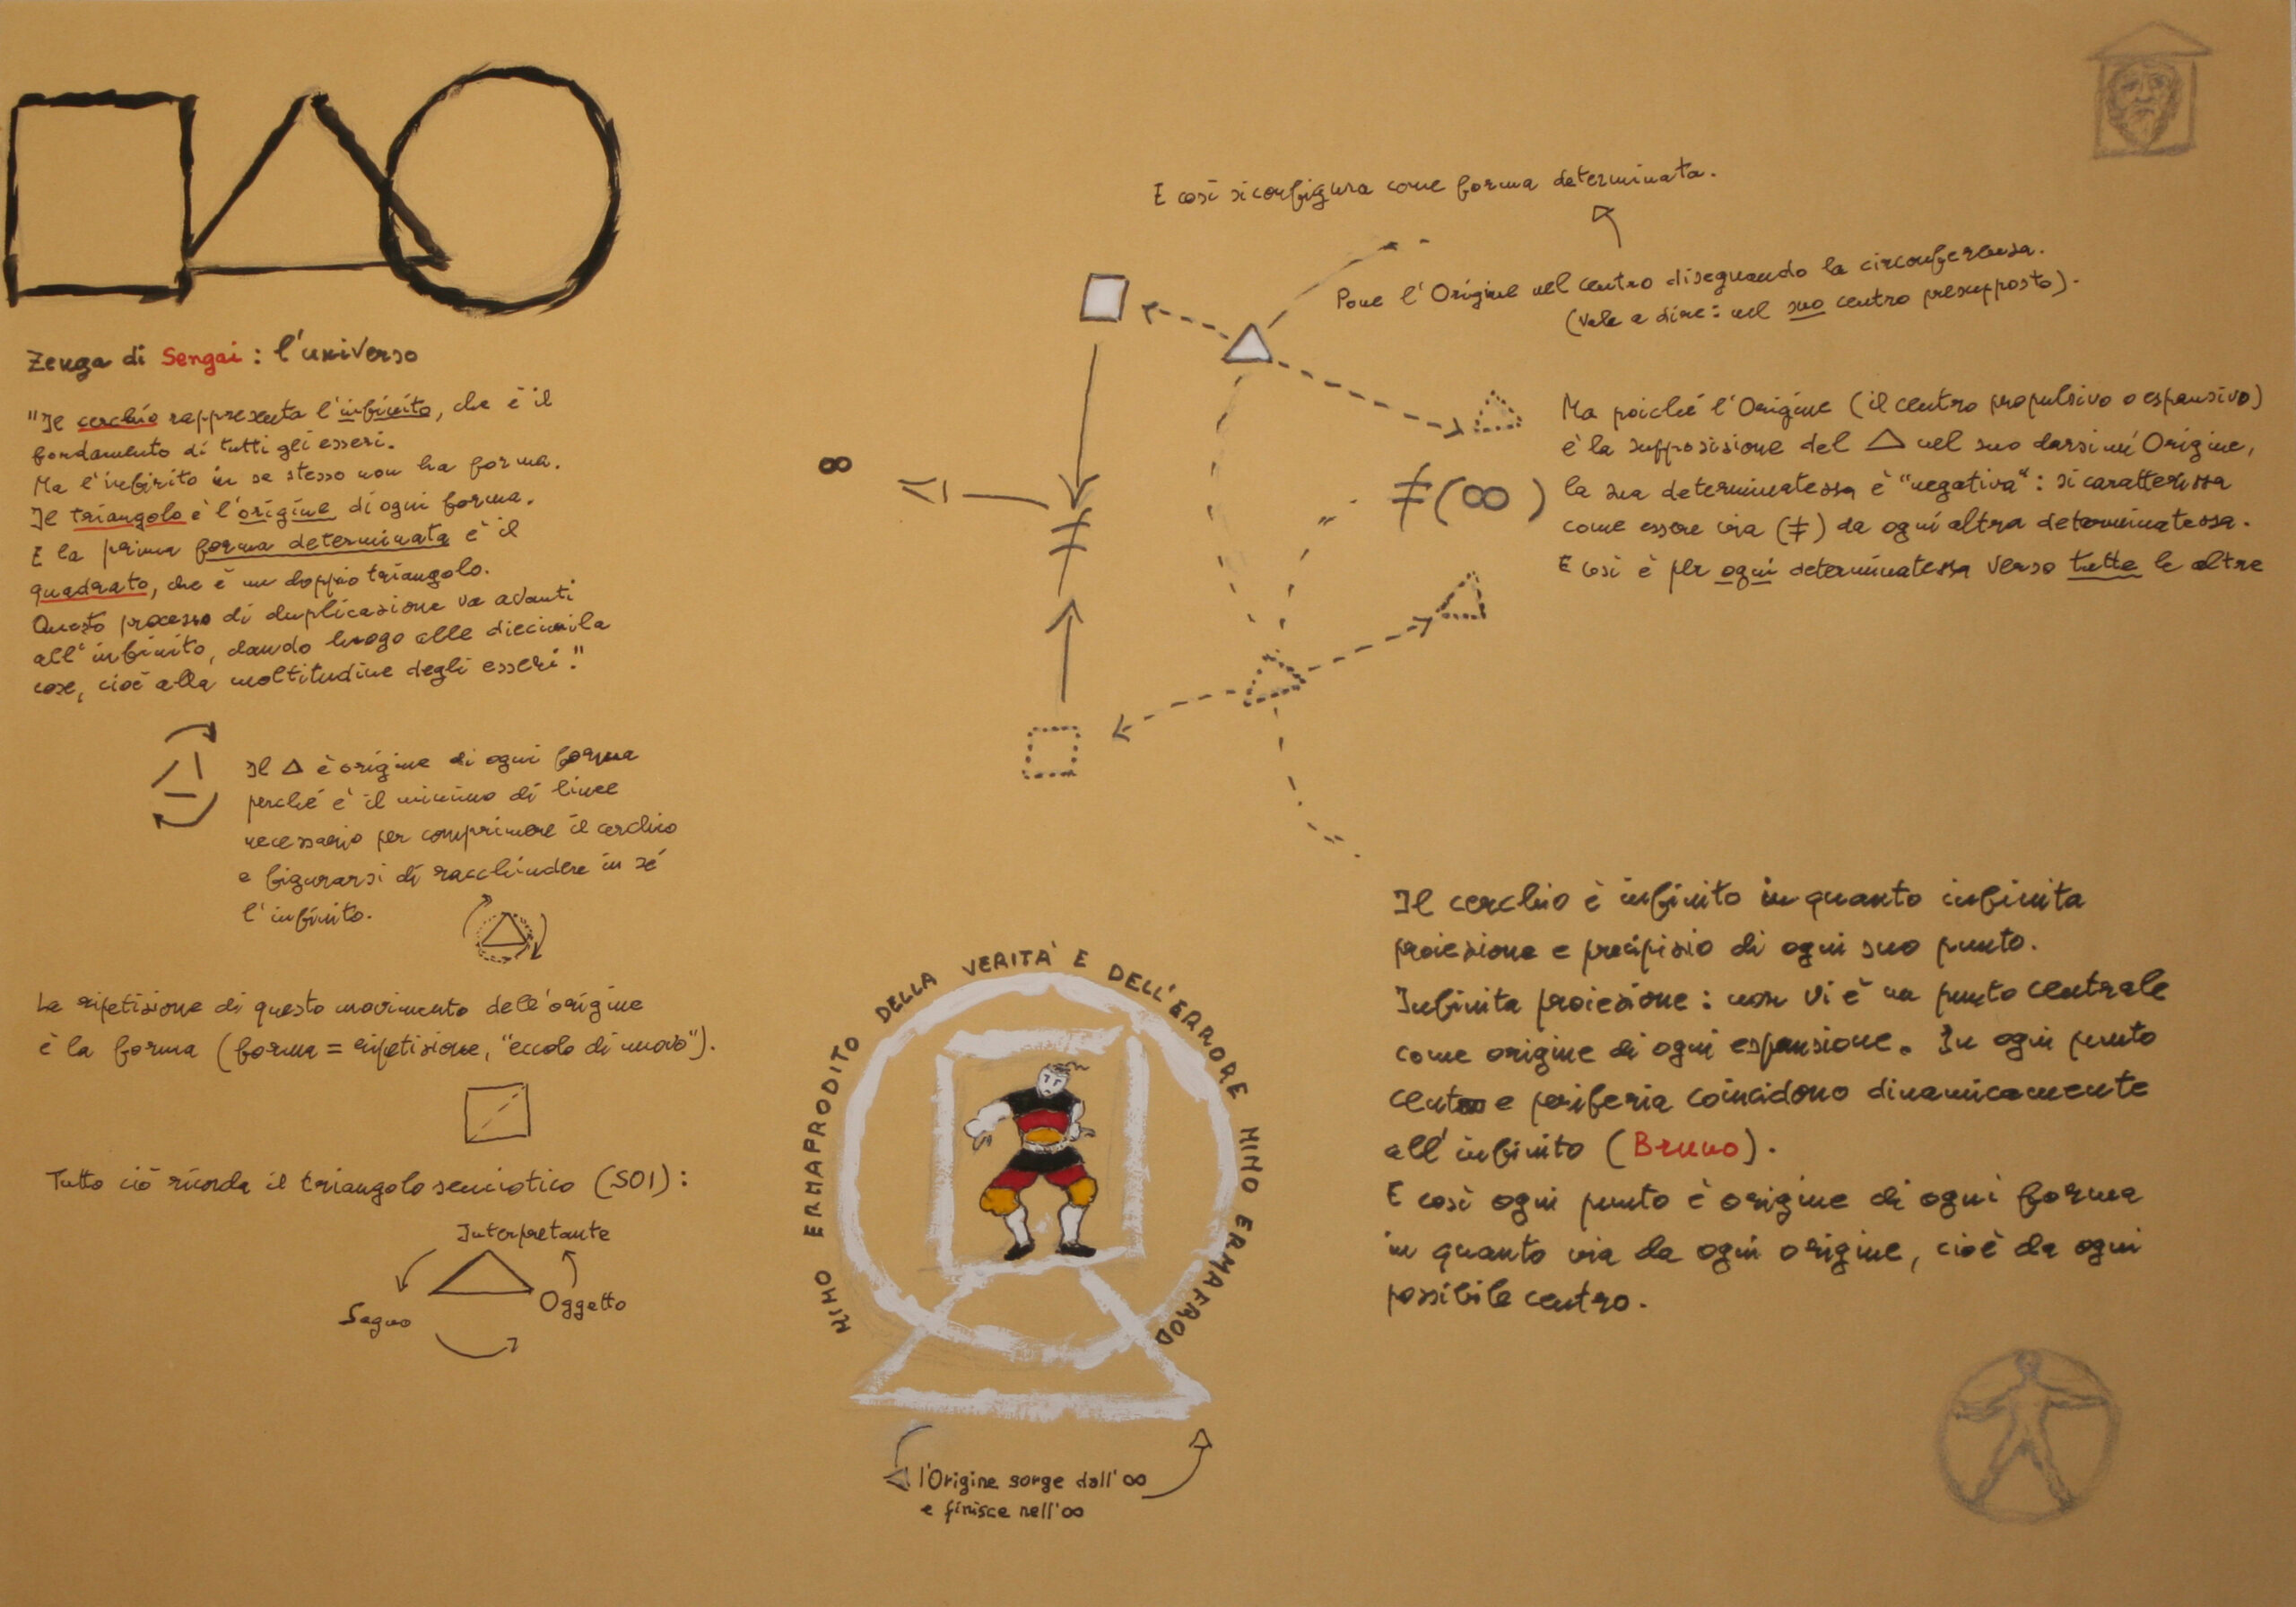 Zenga di Sengai : l'universo
"Il cerchio rappresenta l'infinito, che è il
fondamento di tutti gli esseri.
Ma l'infinito in se stesso non ha forma.
Il triangolo è l'origine di ogni forma.
E la prima forma determinata è il
quadrato, che è un doppio triangolo.
Questo processo di duplicazione va avanti
all'infinito, dando luogo alle diecimila
cose, cioè alla moltitudine degli esseri."
Il △ è origine di ogni forma
perché è il minimo di linee
necessario per comprimere il cerchio
e figurarsi di racchiudere in sé
l'infinito.
La ripetizione di questo movimento dell'origine
è la forma (forma = ripetizione, "eccolo di nuovo").
Tutto ciò ricorda il triangolo semiotico (SOI) :
Interpretante
Segno
Oggetto
E così si configura come forma determinata.
Pone l'Origine nel centro disegnando la circonferenza.
(Vale a dire: nel suo centro presupposto).
∞
≠
≠(∞)
Ma poiché l'Origine (il centro propulsivo o espansivo)
è la supposizione del △ nel suo darsi in Origine,
la sua determinatezza è "negativa": si caratterizza
come essere via (≠) da ogni altra determinatezza.
E così è per ogni determinatezza verso tutte le altre
MIMO ERMAPRODITO DELLA VERITÀ E DELL'ERRORE MIMO ERMAFROD
l'Origine sorge dall'∞
e finisce nell'∞
Il cerchio è infinito in quanto infinita
proiezione e precipizio di ogni suo punto.
Infinita proiezione : non vi è un punto centrale
come origine di ogni espansione. In ogni punto
centro e periferia coincidono dinamicamente
all'infinito (Bruno).
E così ogni punto è origine di ogni forma
in quanto via da ogni origine, cioè da ogni
possibile centro.